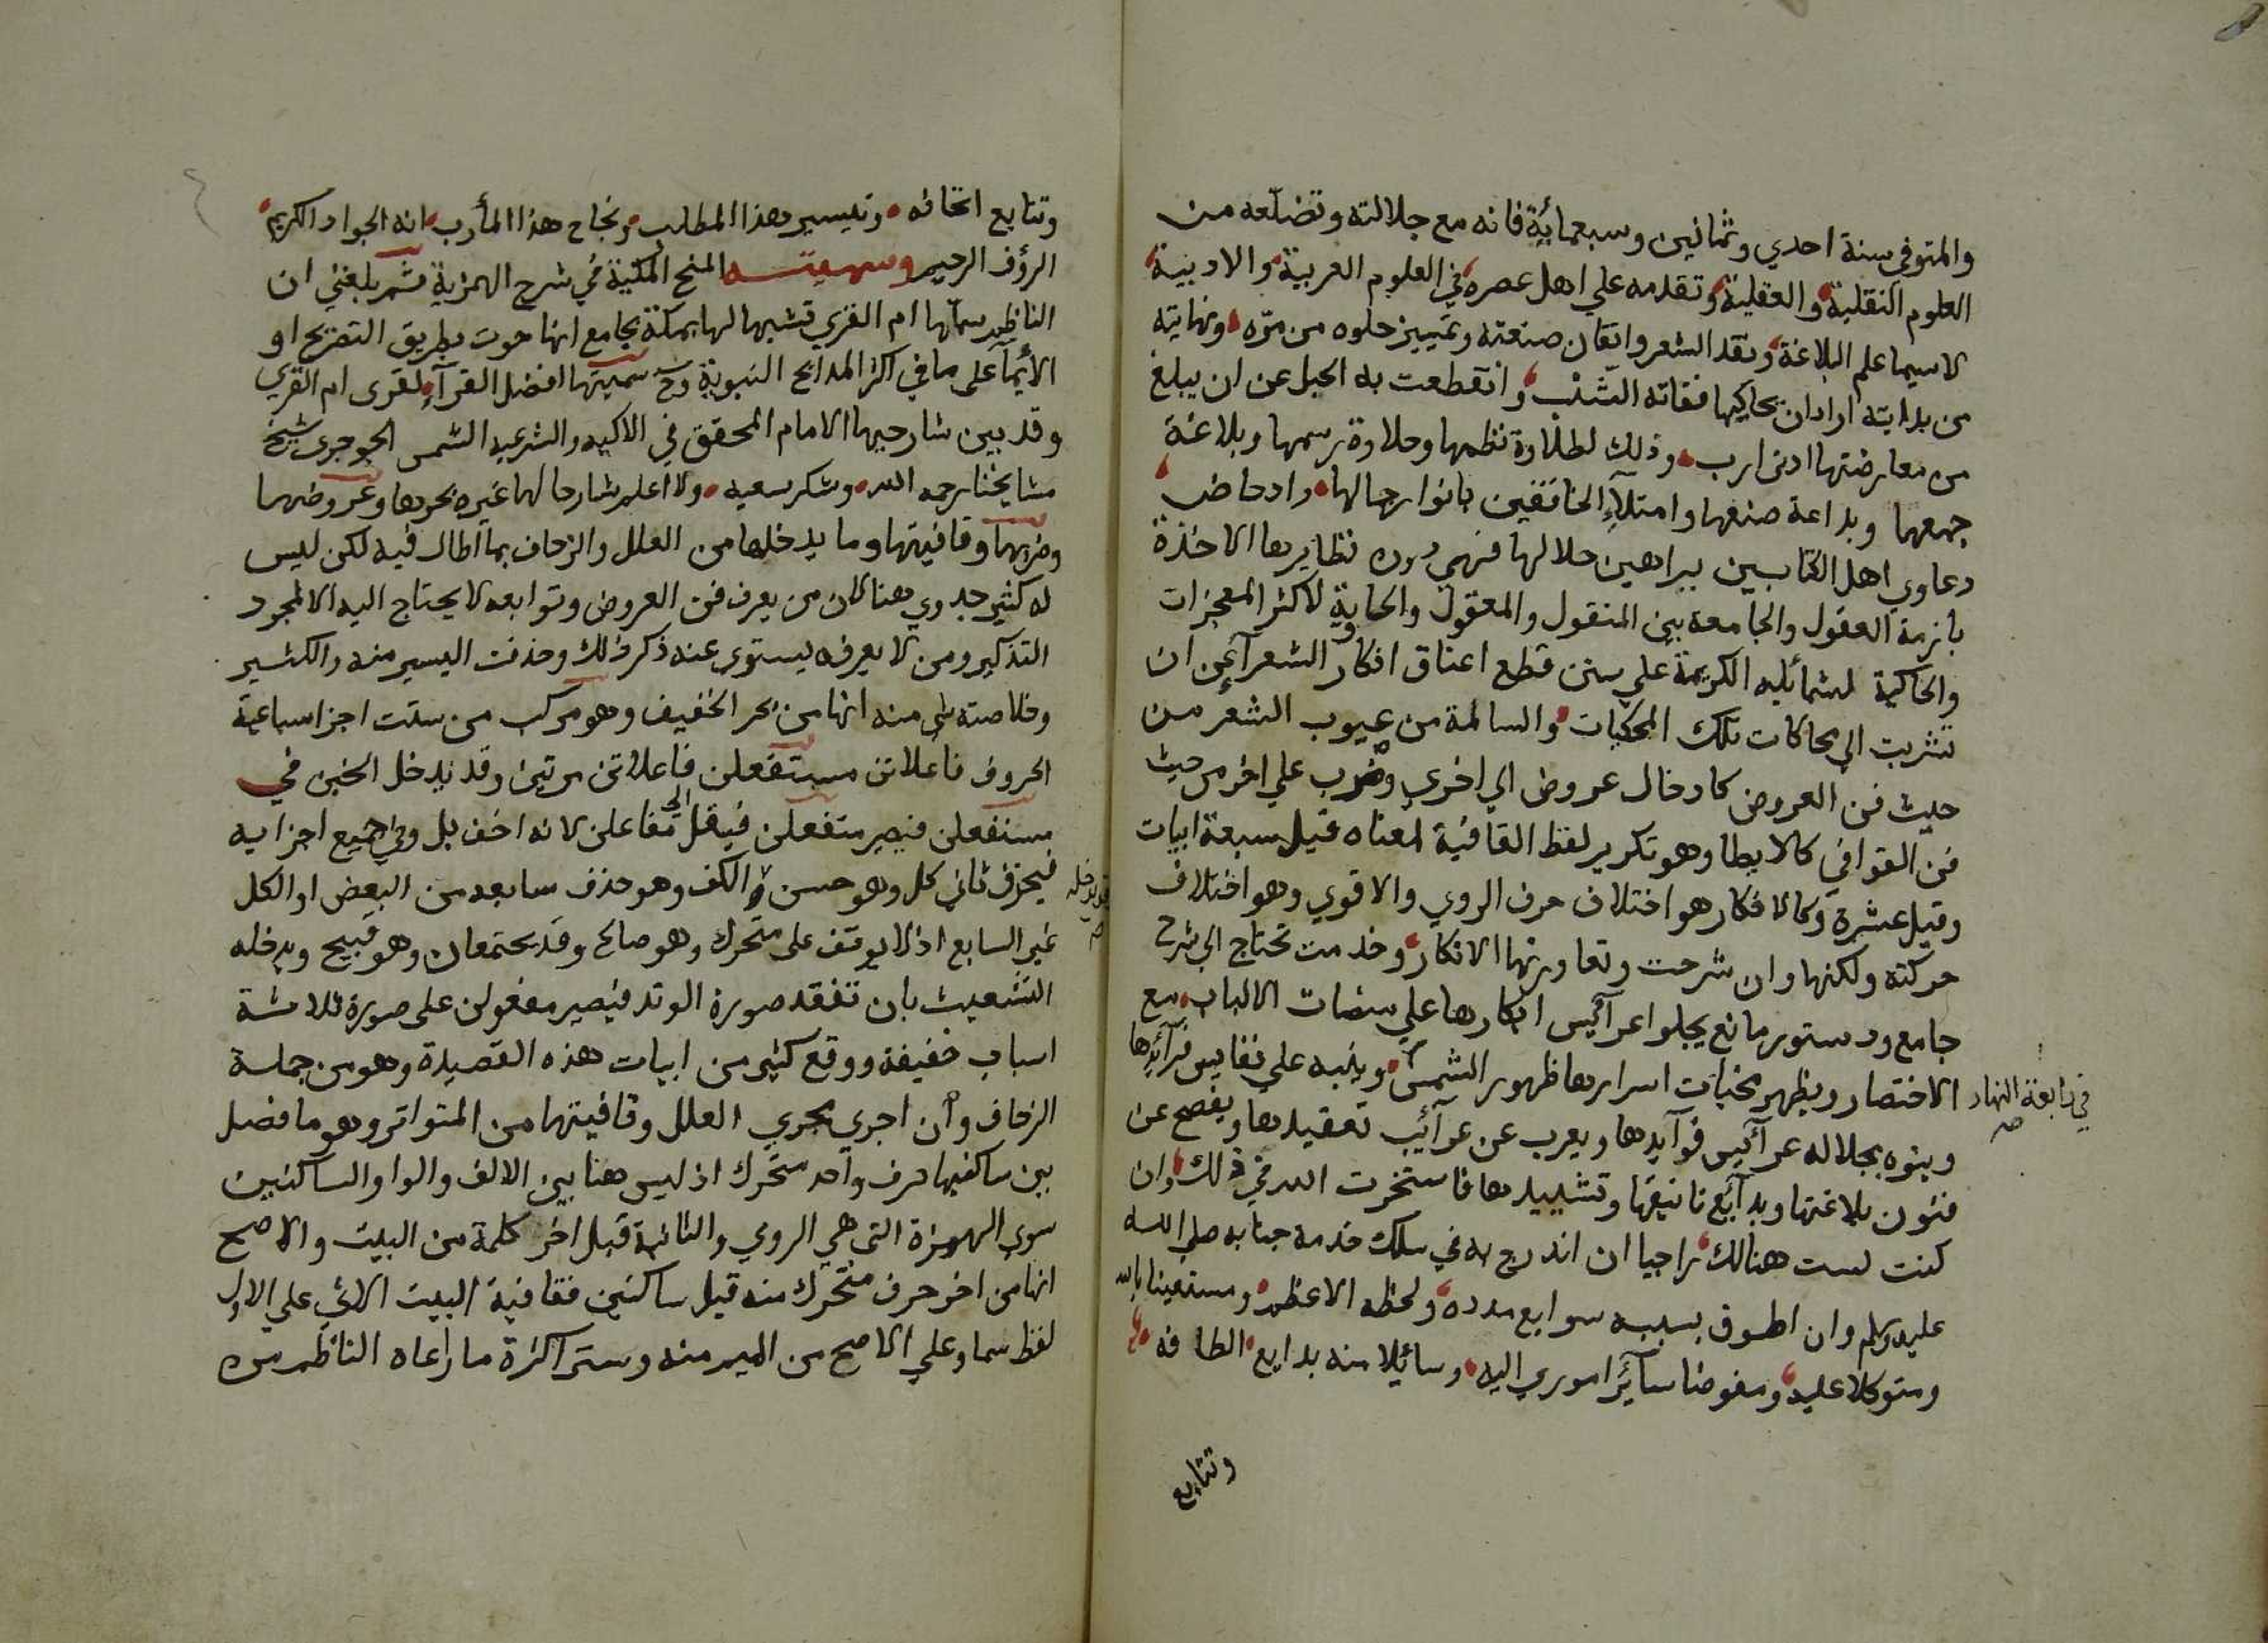 والمتوفي سنة احدي وثمانين وسبعمائة فانه مع جلالته وتضلعه من
العلوم النقلية والعقلية وتقدمه علي اهل عصره في العلوم العربية والادبية
لا سيما علم البلاغة ونقد الشعر واتقان صنعته وتمييز حلوه من مره ونهايته
من بدايته اراد ان يحاكيها ففاته الشنب وانقطعت به الحيل عن ان يبلغ
من معارضتها ادني ارب وذلك لطلاوة نظمها وحلاوة رسمها وبلاغة
جمعها وبداعة صنعها وامتلآء الخافقين بانوار جمالها وادحاض
دعاوي اهل الكتابين ببراهين جلالها فهي دون نظايرها الاخذة
بازمة العقول والجامعة بين المنقول والمعقول والحاوية لاكثر المعجزات
والحاكية لشمائله الكريمة علي سنن قطع اعناق افكار الشعرآء عن ان
تشربت الي محاكات تلك المحكيات والسالمة من عيوب الشعر من
حيث فن العروض كادخال عروض الي اخري وضرب علي اخر من حيث
فن القوافي كالايطا وهو تكرير لفظ القافية لمعناه قبل سبعة ابيات
وقيل عشرة وكالاكفا هو اختلاف حرف الروي والاقوي وهو اختلاف
حركته ولكنها وان شرحت وتعاورتها الافكار وخدمت تحتاج الي شرح
جامع ودستور مانع يجلوا عرآئيس ابكارها علي منصات الالباب مع
الاختصار ويظهر مخبآت اسرارها ظهور الشمس وينبه علي نفايس فرآئدها
في رابعة النهار صح
وينوه بجلاله عرآئيس فوآيدها ويعرب عن غرآئب تعقيدها ويفصح عن
فنون بلاغتها وبدآئع تانيقها وتشييدها فاستخرت الله في ذلك وان
كنت لست هنالك راجيا ان اندرج به في سلك خدمة جنابه صلي الله
عليه وسلم وان اطوق بسببه سوابع مدده ولحظه الاعظم ومستعينا بالله
ومتوكلا عليه ومفوضا سآئر اموري اليه وسائلا منه بدايع الطافه
وتتابع
وتتابع اتحافه وتيسير هذا المطلب ونجاح هذا المأرب انه الجواد الكريم
الرؤف الرحيم وسميته المنح المكية في شرح الهمزية ثم بلغني ان
الناظم سماها ام القري تشبيها لها بمكة بجامع انها حوت بطريق التصريح او
الأيمآ علي ما في اكثر المدايح النبوية وح سميتها افضل القرآء لقرى ام القري
وقد بين شارحها الامام المحقق في الاكيه والشرعيه الشمس الجوجري شيخ
مشايخنا رحمه الله وشكر سعيه ولا اعلم شارحا لها غيره بحرها وعروضها
وضربها وقافيتها وما يدخلها من العلل والزحاف بما اطال فيه لكن ليس
له كثير جدوي هنا لان من يعرف فن العروض وتوابعه لا يحتاج اليه الا لمجرد
التذكير ومن لا يعرفه يستوي عنه ذكر ذلك وحذفت اليسير منه والكثير
وخلاصة شي منه انها من بحر الخفيف وهو مركب من ستت اجزا سباعية
الحروف فاعلاتن مستفعلن فاعلاتن مرتين وقد يدخل الخبن في
مستفعلن فيصير متفعلن فينقل الي مفاعلن لانه اخف بل وفي جميع اجزايه
فيحذف ثاني كل وهو حسن و الكف وهو حذف سابعه من البعض او الكل
قد يدخله صح
غير السابع اذ لا يوقف على متحرك وهو صالح وقد يجتمعان وهو قبيح ويدخله
التشعيث بان تفقد صورة الوتد فيصير مفعولن على صورة ثلاثة
اسباب خفيفة ووقع كثير من ابيات هذه القصيدة وهو من جملة
الزحاف وان اجري مجري العلل وقافيتها من المتواتر وهو ما فصل
بين ساكنيها حرف واحد متحرك اذ ليس هنا بين الالف والواو الساكنين
سوي الهمزة التي هي الروي والثانية قبل اخر كلمة من البيت والاصح
انها من اخر حرف متحرك منه قبل ساكنين فقافية البيت الاتي علي الاول
لفظ سما وعلي الاصح من الميم منه وستر اكثرة ما راعاه الناظم من